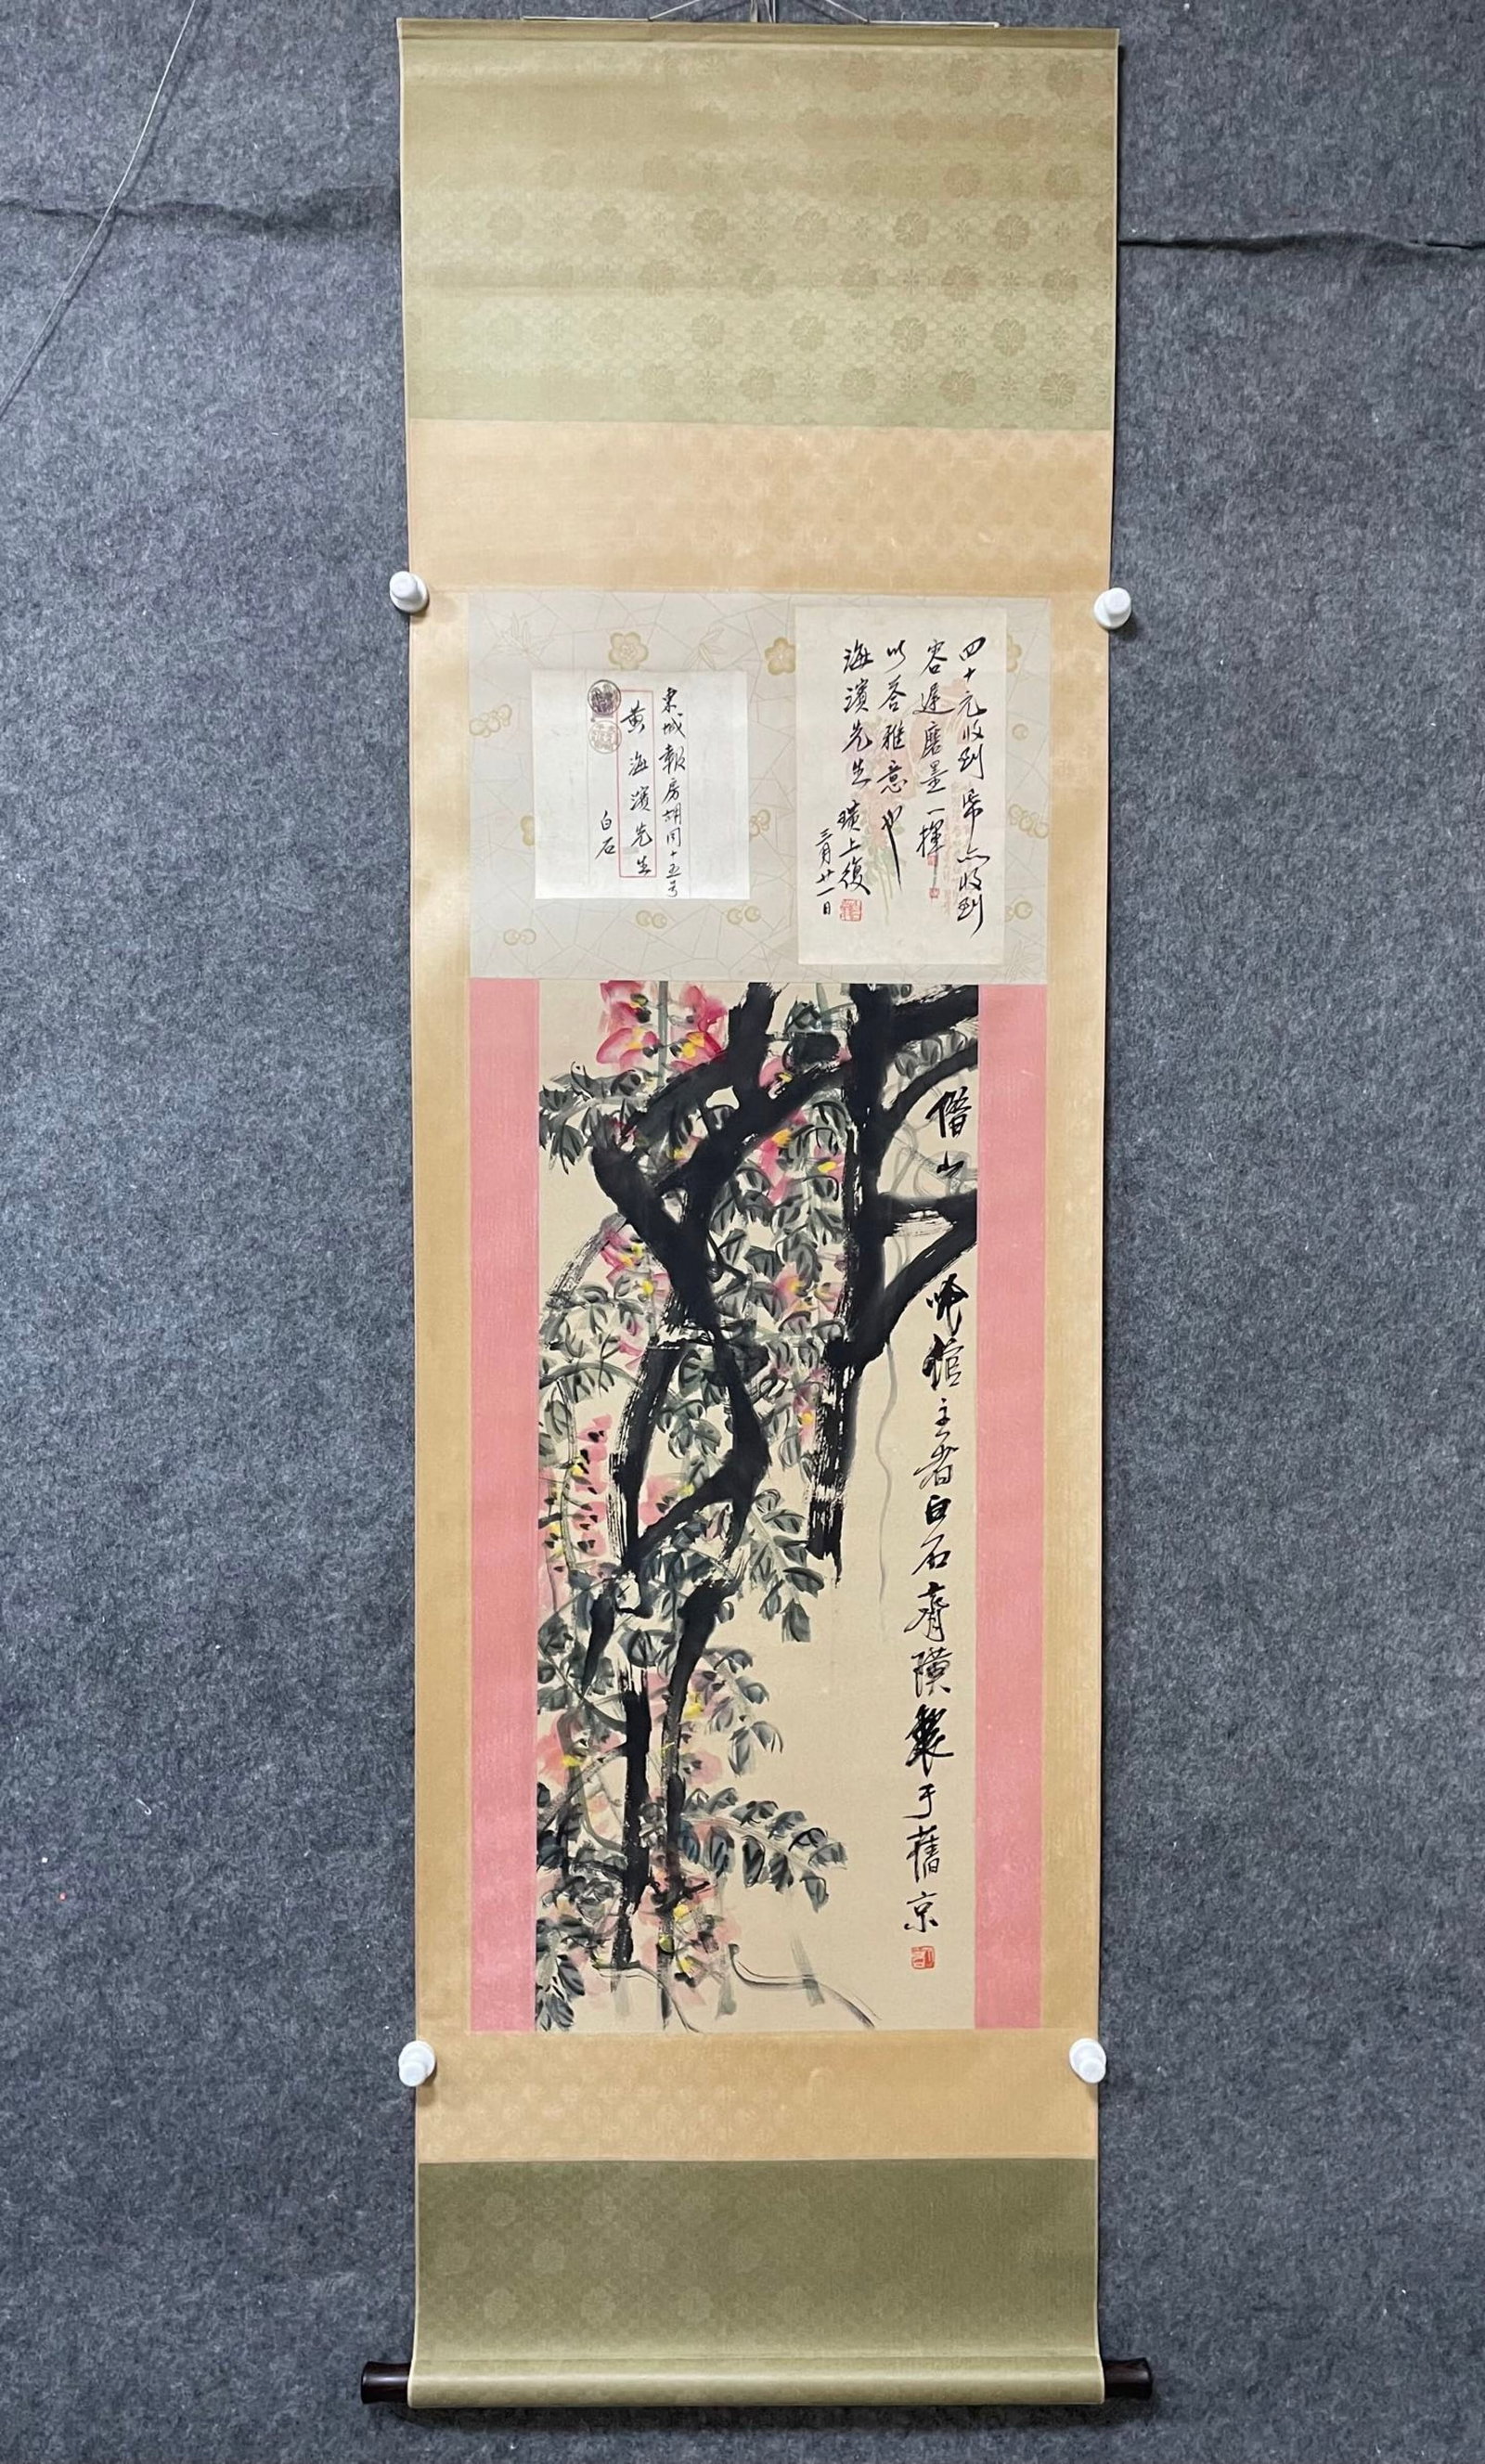 四十元收到帋亦收到
容遲磨墨一揮
以答雅意也
海濱先生 璜上復
三月廿一日
東城報房胡同十五号
黄海濱先生
白石
借山吟館主者白石齊璜製于舊京